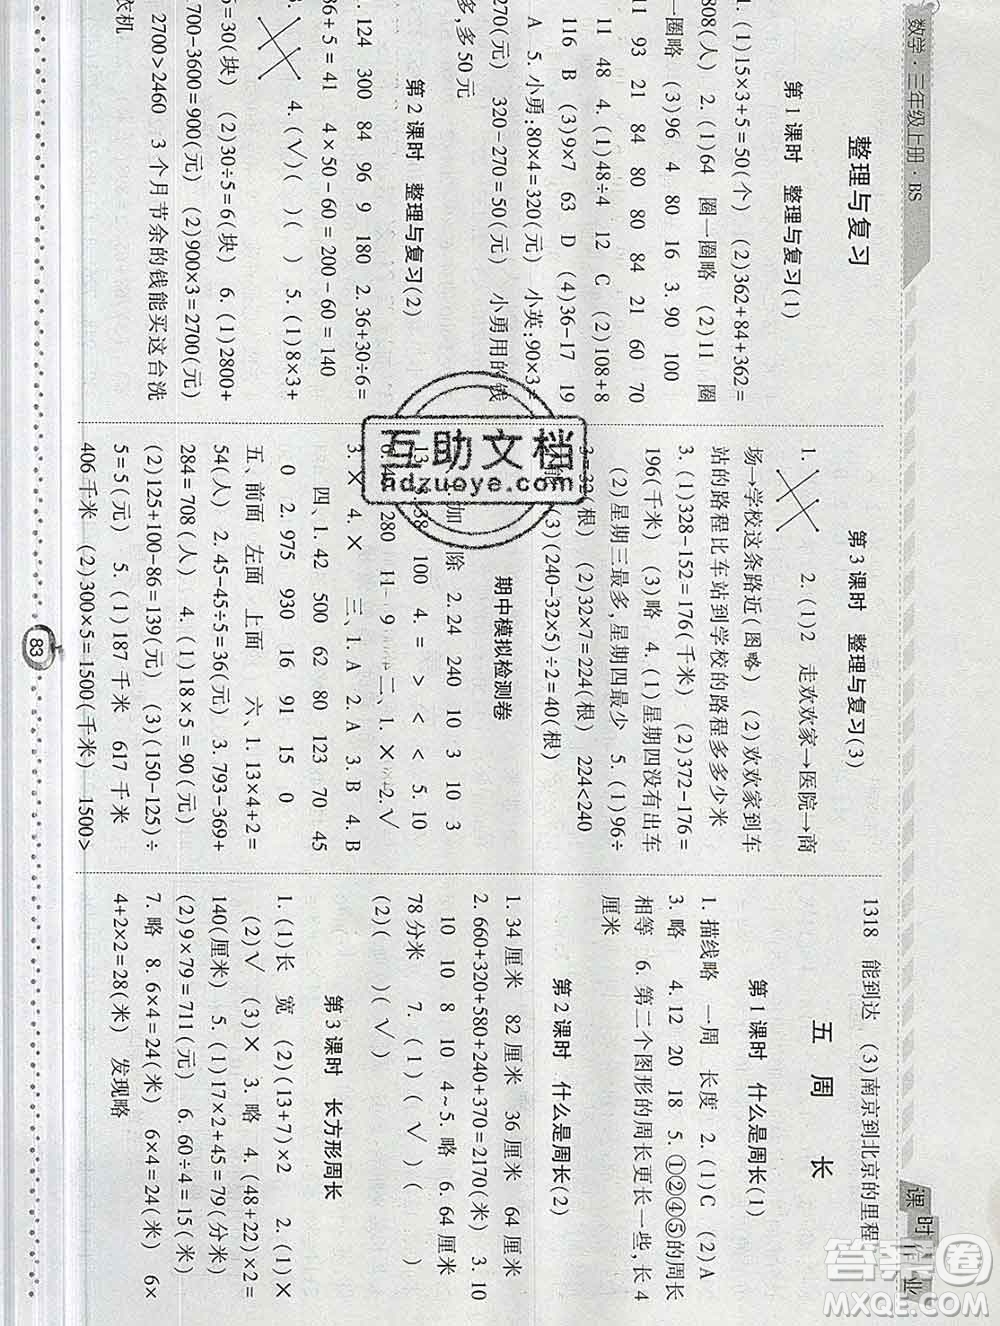 数学·三年级上册·BS
整理与复习
第1课时 整理与复习(1)
1. (1)15×3+5=50(个) (2)362+84+362=
808(人) 2. (1)64 圈一圈略 (2)11 圈
一圈略 (3)96 4 80 16 3. 90 100
11 93 21 84 80 80 84 21 60 70
11 48 4. (1)48÷4 12 C (2)108+8
116 B (3)9×7 63 D (4)36-17 19
A 5. 小勇:80×4=320(元) 小英:90×3=
270(元) 320-270=50(元) 小勇用的钱
多,多50元
第2课时 整理与复习(2)
1. 124 300 84 96 9 180 2. 36+30÷6=
36+5=41 4×50-60=200-60=140
4. (√)( )( ) 5. (1)8×3+
6=30(块) (2)30÷5=6(块) 6. (1)2800+
2700-3600=900(元) (2)900×3=2700(元)
2700>2460 3个月节余的钱能买这台洗
衣机
第3课时 整理与复习(3)
1. 2. (1)2 走欢欢家→医院→商
场→学校这条路近(图略) (2)欢欢家到车
站的路程比车站到学校的路程多多少米
3. (1)328-152=176(千米) (2)372-176=
196(千米) (3)略 4. (1)星期四没有出车
(2)星期三最多,星期四最少 5. (1)96÷
3=32(根) (2)32×7=224(根) 224<240
能 (3)(240-32×5)÷2=40(根)
期中模拟检测卷
加 除 2. 24 240 10 3 10
13 38 100 4. = > < < 5. 10
6. 4 280 11 9 二、1. × 2. √
3. × 4. × 三、1. A 2. A 3. B 4. B
四、1. 42 500 62 80 123 70 45
0 2. 975 930 16 91 15 0
五、前面 左面 上面 六、1. 13×4+2=
54(人) 2. 45-45÷5=36(元) 3. 793-369+
284=708(人) 4. (1)18×5=90(元)
(2)125+100-86=139(元) (3)(150-125)÷
5=5(元) 5. (1)187千米 617千米
406千米 (2)300×5=1500(千米) 1500>
1318 能到达 (3)南京到北京的里程
五 周 长
第1课时 什么是周长(1)
1. 描线略 一周 长度 2. (1)C (2)A
3. 略 4. 12 20 18 5. ①②④⑤的周长
相等 6. 第二个图形的周长更长一些,长4
厘米
第2课时 什么是周长(2)
1. 34厘米 82厘米 36厘米 64厘米
2. 660+320+580+240+370=2170(米) 3. 10
10 10 8 10 4~5. 略 6. 64厘米
78分米 7. (1)(√)( )
(2)( )(√)
第3课时 长方形周长
1. (1)长 宽 (2)(13+7)×2 2. (1)×
(2)√ (3)× 3. 略 4. (48+22)×2=
140(厘米) 5. (1)17×2+45=79(分米)
(2)9×79=711(元) 6. 60÷4=15(米)
7. 略 8. 6×4=24(米) 6×4=24(米) 6×
4+2×2=28(米) 发现略
课时作业
83
互助文档
hdzuoye.com
答案圈
MXQE.COM